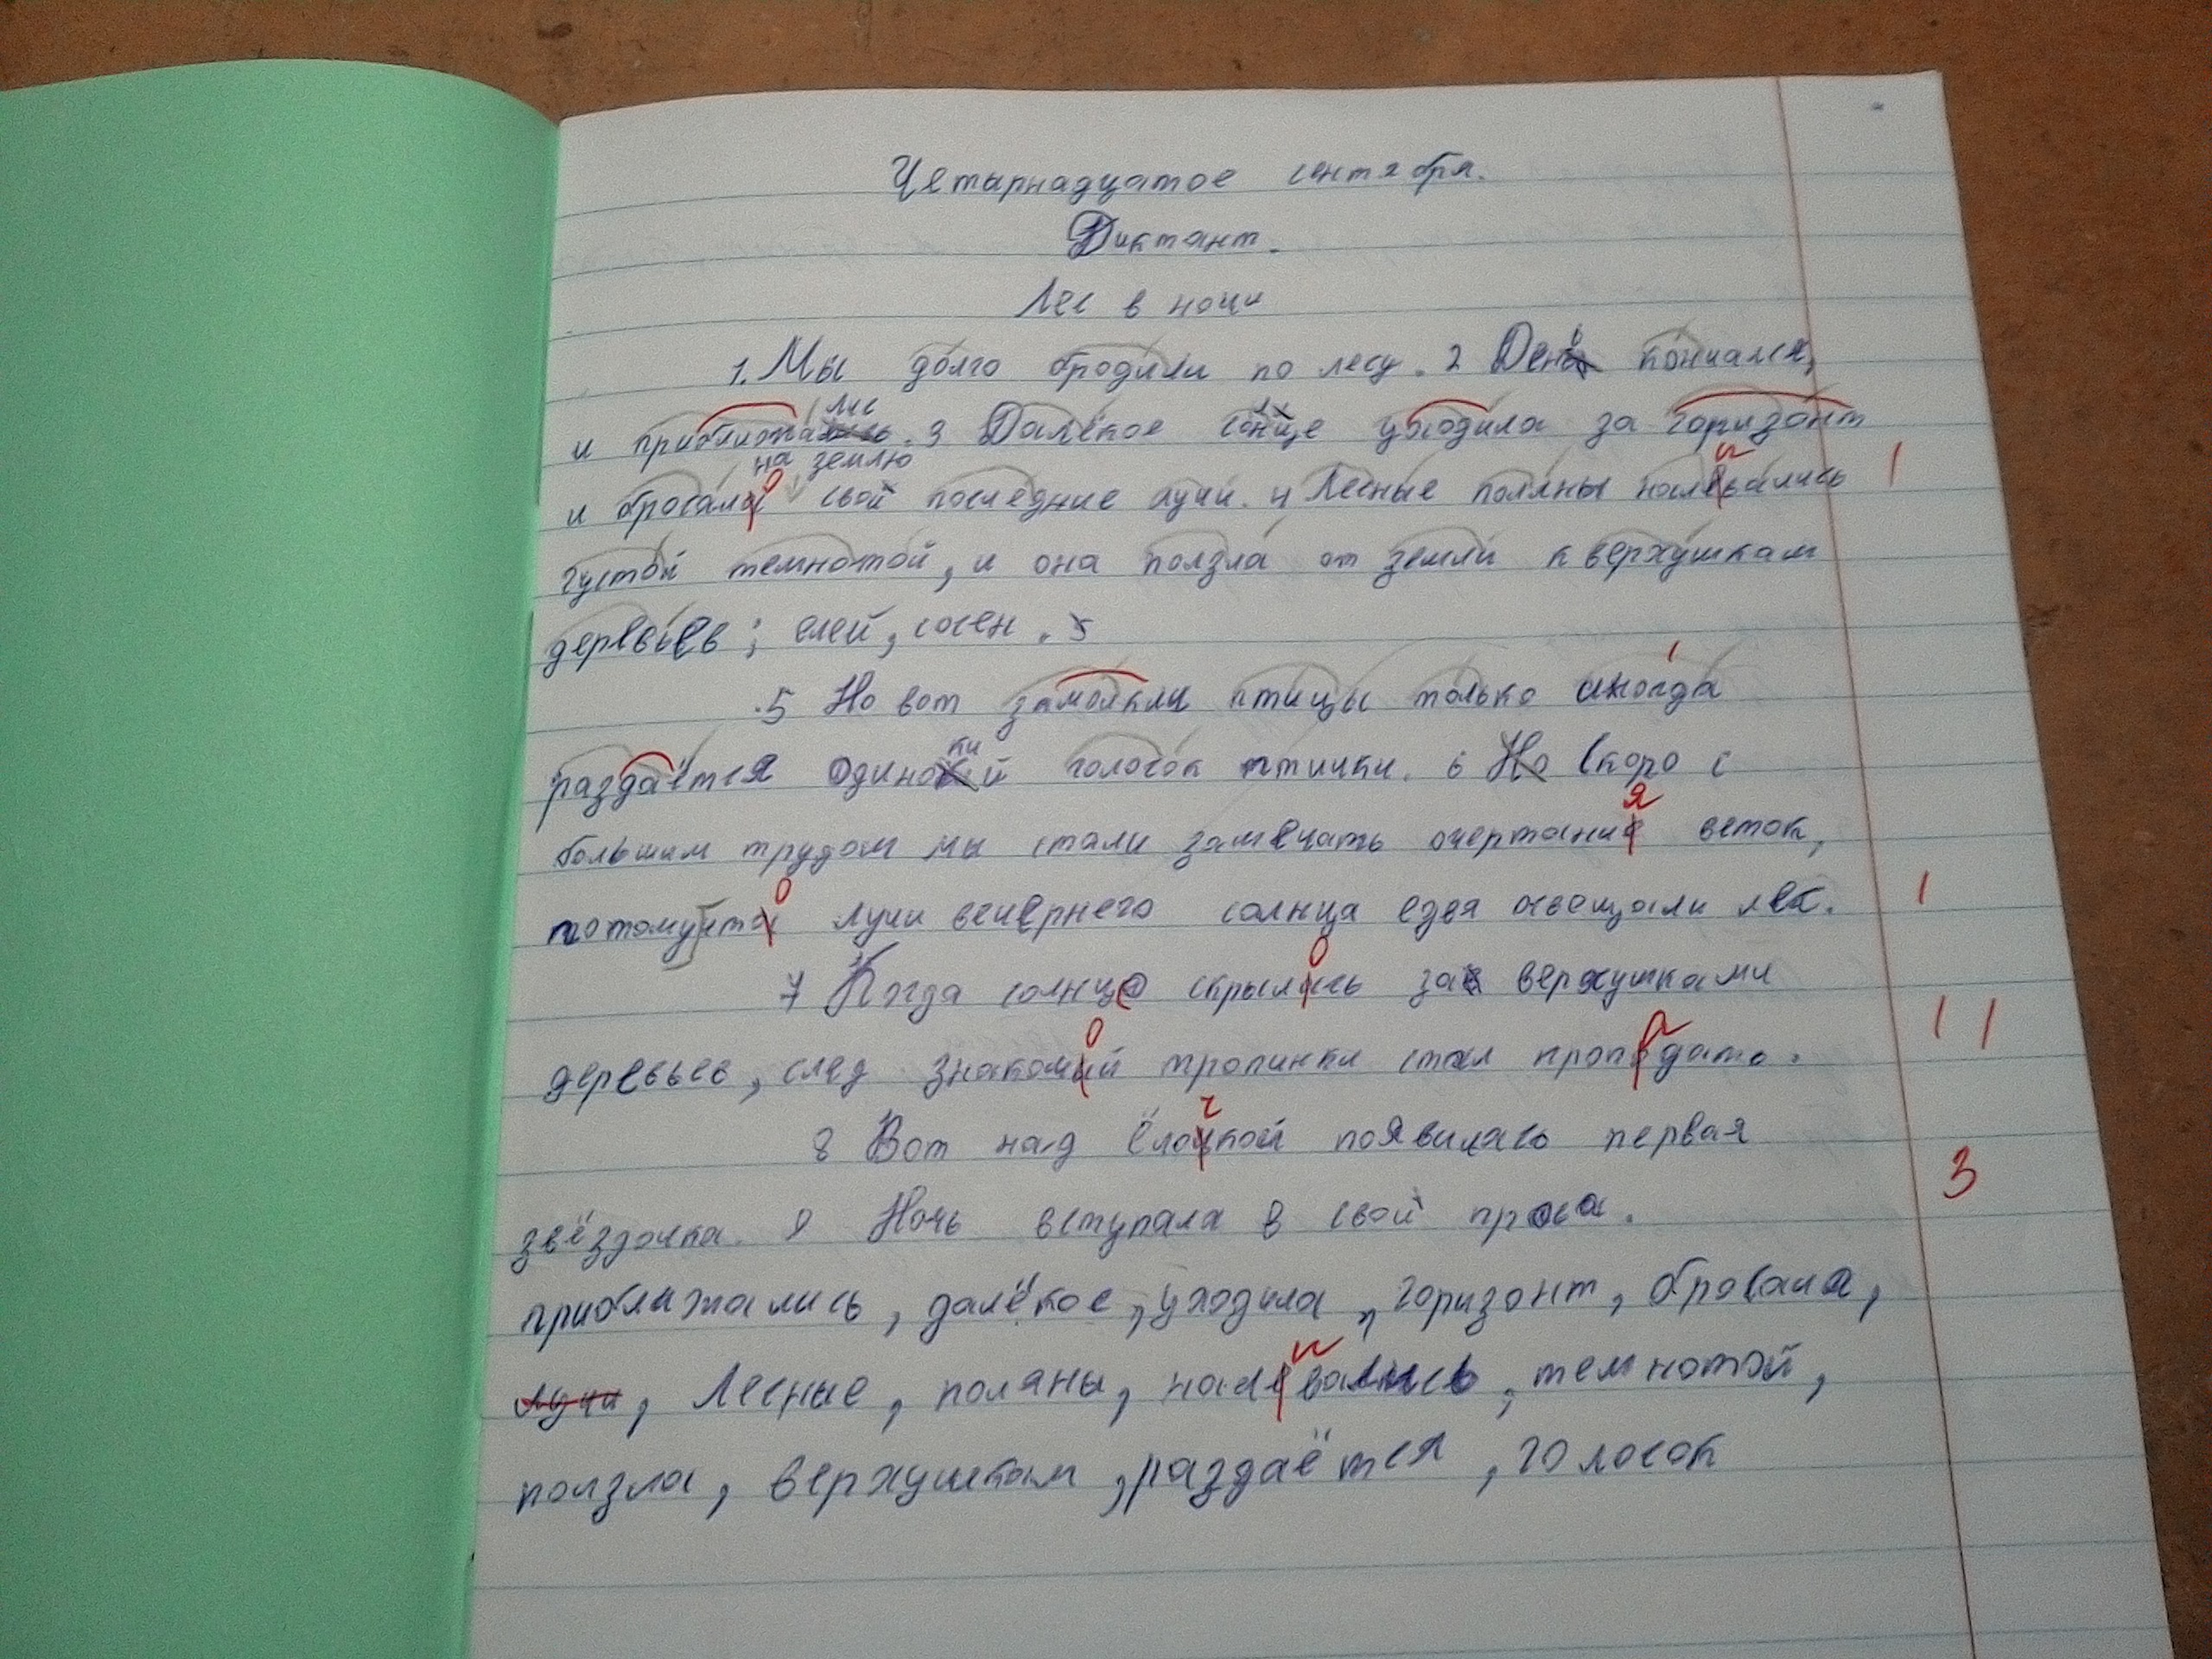 Четырнадцатое сентября.
Диктант.
Лес в ночи
1. Мы долго бродили по лесу. 2 День кончался,
и приближался лес. 3 Далёкое солнце уходила за горизонт
на землю
и бросала свои последние лучи. 4 Лесные поляны налевались 1
густой темнотой, и она ползла от земли к верхушкам
деревьев; елей, сосен. 5
5 Но вот замолкли птицы только иногда
раздаётся одинокий голосок птички. 6 Но Скоро с
большим трудом мы стали замечать очертание веток,
потому что лучи вечернего солнца едва освещали лес. 1
7 Когда солнце скрылись за верхушками
деревьев, след знакомий тропинки стал пропадать. 1 1
8 Вот над ёлочкой появилась первая
3
звёздочка. 9 Ночь вступала в свои права.
приближались, далёкое, уходила, горизонт, бросала,
лучи, Лесные, поляны, налевались, темнотой,
ползла, верхушкам, раздаётся, голосок